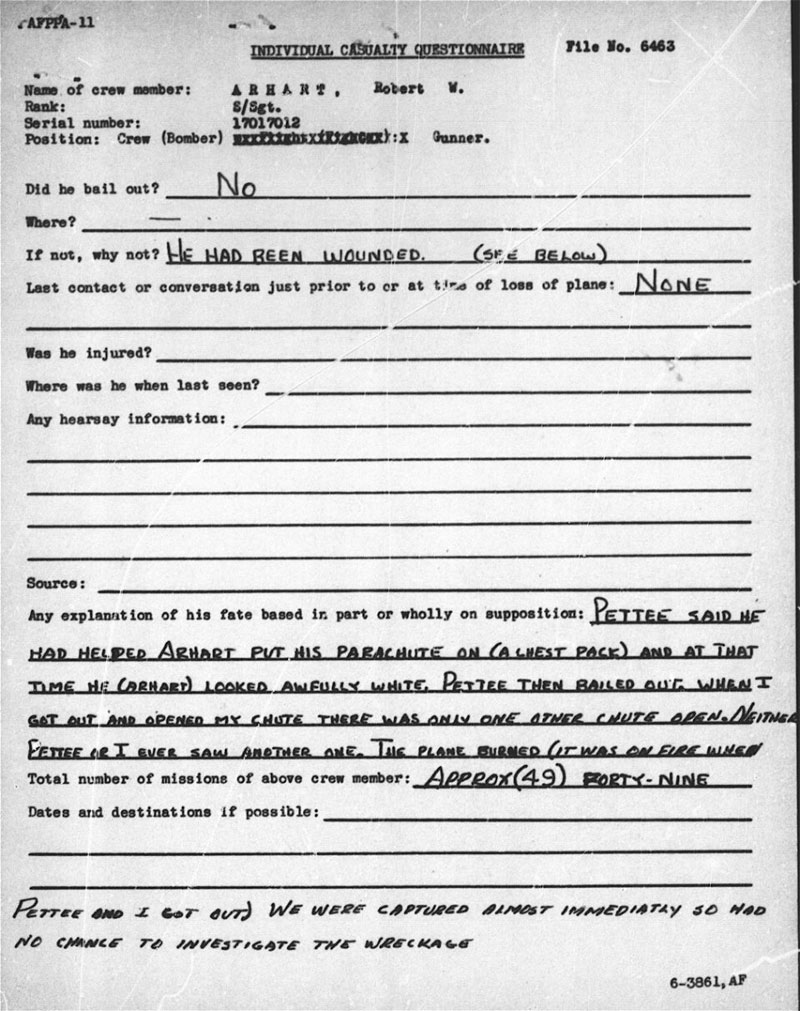 AFPPA-11
INDIVIDUAL CASUALTY QUESTIONNAIRE File No. 6463
Name of crew member: A R H A R T, Robert W.
Rank: S/Sgt.
Serial number: 17017012
Position: Crew (Bomber) Gunner.
Did he bail out? No
Where? —
If not, why not? HE HAD BEEN WOUNDED. (SEE BELOW)
Last contact or conversation just prior to or at time of loss of plane: NONE
Was he injured?
Where was he when last seen?
Any hearsay information:
Source:
Any explanation of his fate based in part or wholly on supposition: PETTEE SAID HE
HAD HELPED ARHART PUT HIS PARACHUTE ON (A CHEST PACK) AND AT THAT
TIME HE (ARHART) LOOKED AWFULLY WHITE. PETTEE THEN BAILED OUT. WHEN I
GOT OUT AND OPENED MY CHUTE THERE WAS ONLY ONE OTHER CHUTE OPEN. NEITHER
PETTEE OR I EVER SAW ANOTHER ONE. THE PLANE BURNED (IT WAS ON FIRE WHEN
Total number of missions of above crew member: APPROX (49) FORTY-NINE
Dates and destinations if possible:
PETTEE AND I GOT OUT) WE WERE CAPTURED ALMOST IMMEDIATLY SO HAD
NO CHANCE TO INVESTIGATE THE WRECKAGE
6-3861, AF